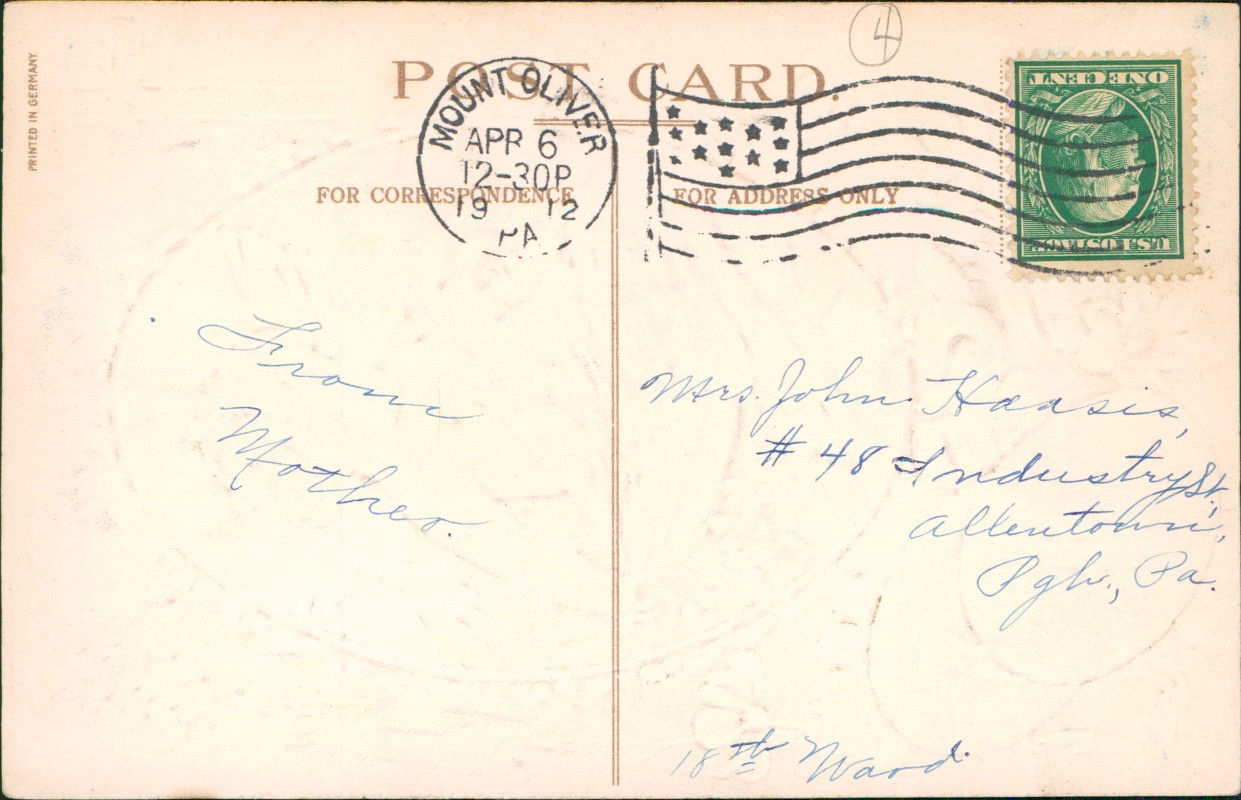 PRINTED IN GERMANY.
4
POST CARD.
MOUNT OLIVER
APR 6
12-30P
19 12
PA
ONE CENT
U.S. POSTAGE
FOR CORRESPONDENCE
FOR ADDRESS ONLY
From
Mother.
Mrs. John Haasis,
# 48 Industry St.,
Allentown,
Pgh., Pa.
18th Ward.